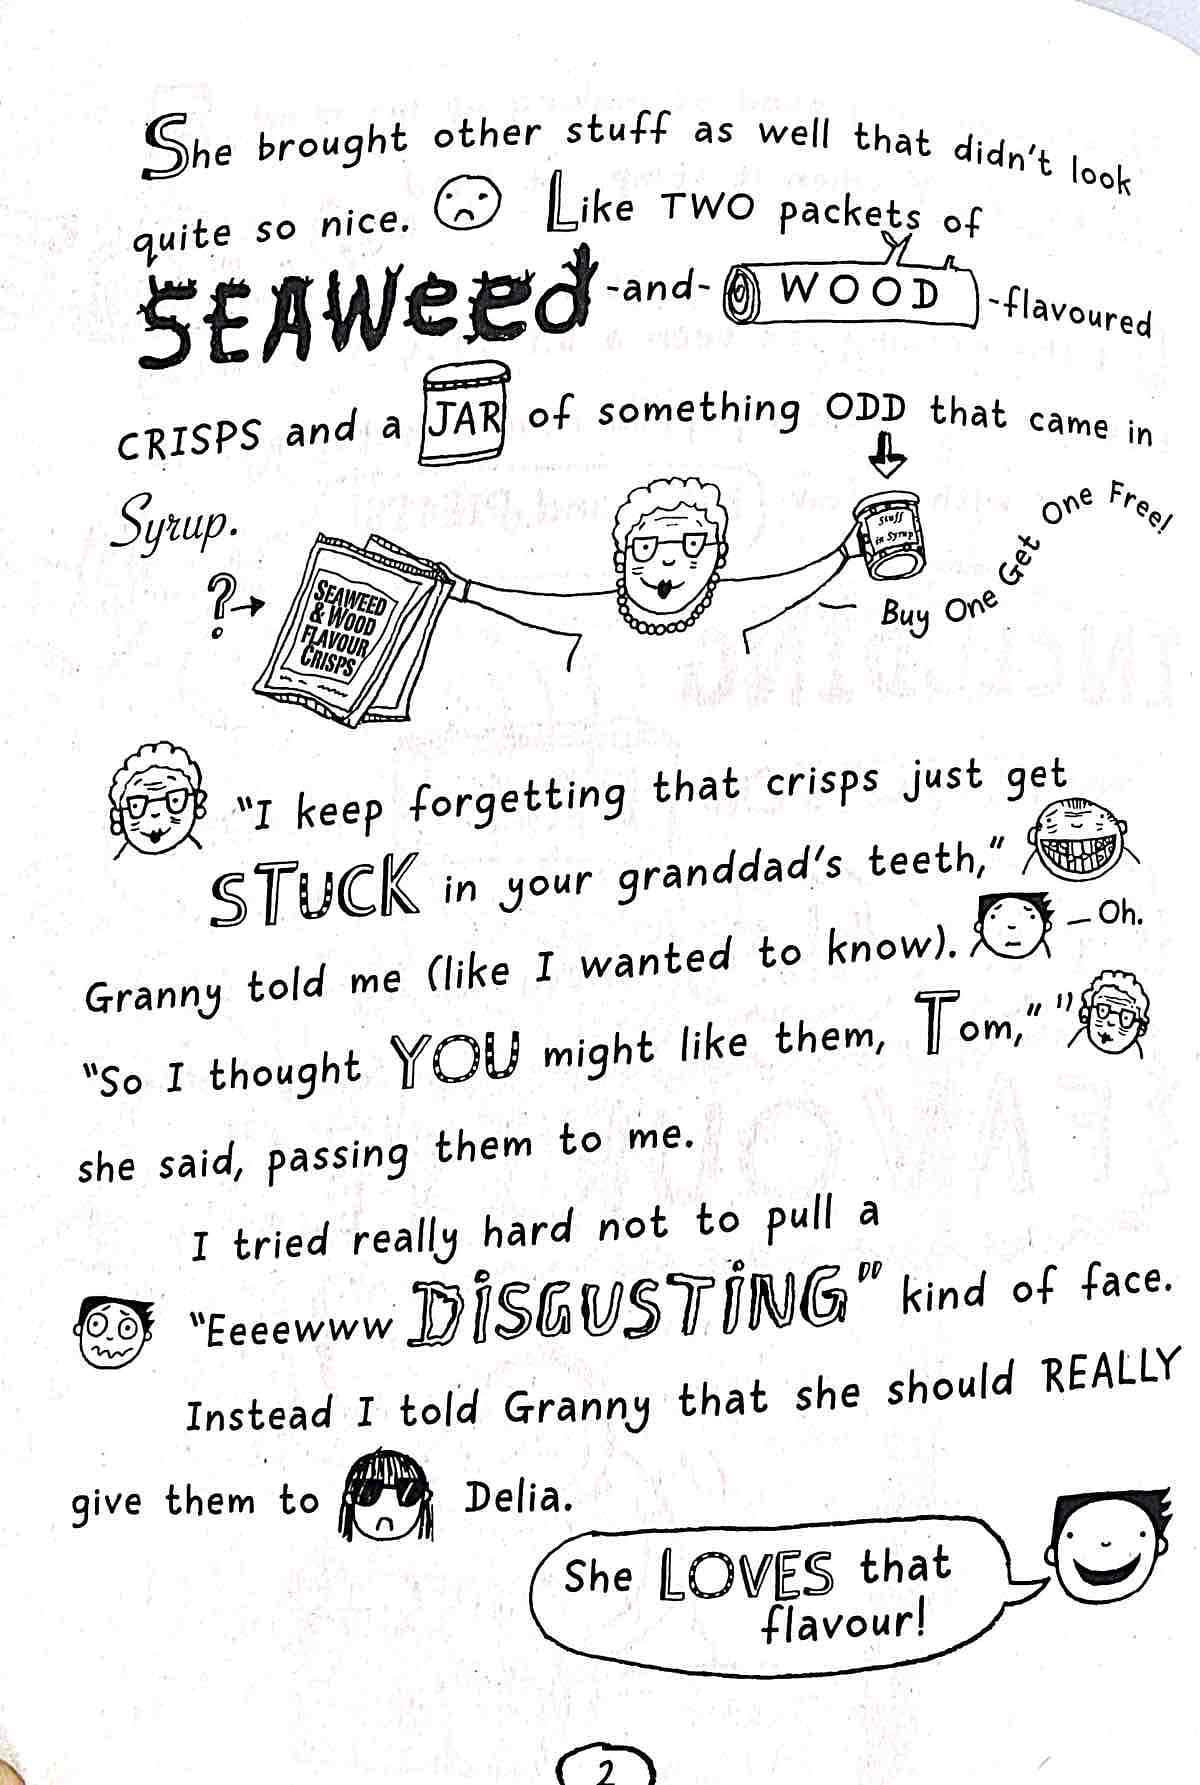 She brought other stuff as well that didn't look
quite so nice. Like TWO packets of
SEAWeed -and- WOOD -flavoured
CRISPS and a JAR of something ODD that came in
Syrup.
?
SEAWEED
& WOOD
FLAVOUR
CRISPS
Stuff
in Syrup
Buy One Get One Free!
"I keep forgetting that crisps just get
STUCK in your granddad's teeth,"
Granny told me (like I wanted to know). – Oh.
"So I thought YOU might like them, Tom,"
she said, passing them to me.
I tried really hard not to pull a
"Eeeewww DiSGUSTiNG" kind of face.
Instead I told Granny that she should REALLY
give them to Delia.
She LOVES that
flavour!
2